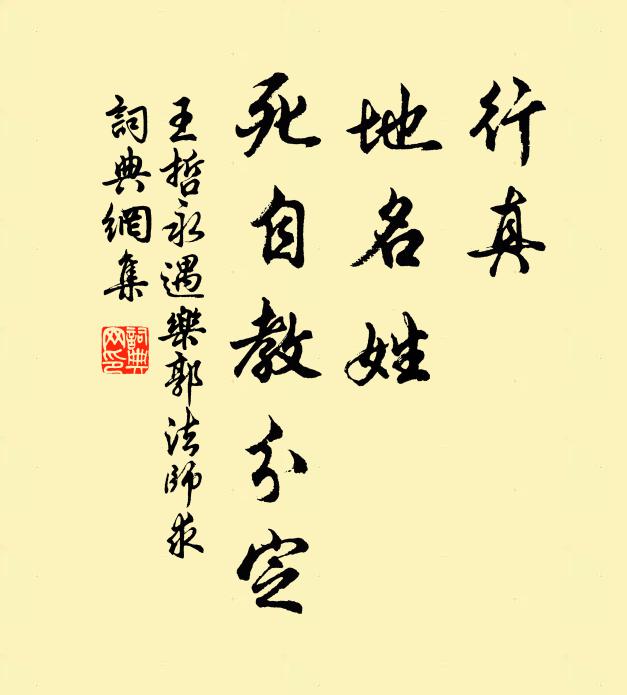 行真
地名姓
死自教分定
王哲永遇樂郭法師求
詞典網集
詞典
网印